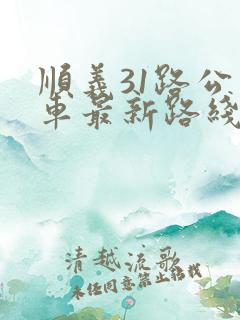 順義31路公
車最新路綫
清越流歌
未经同意禁止转载